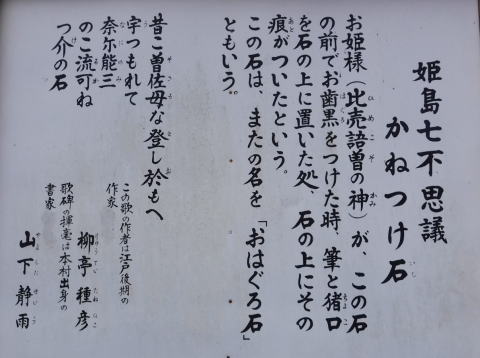 姫島七不思議
かねつけ石
お姫様(比売語曽の神)が、この石
の前でお歯黒をつけた時、筆と猪口
を石の上に置いた処、石の上にその
痕がついたという。
この石は、またの名を「おはぐろ石」
ともいう。
昔こ曽佐母な登し於もへ
宇つもれて
奈尓能三
のこ流可ね
つ介の石
この歌の作者は江戸後期の
作家
柳亭種彦
歌碑の揮毫は本村出身の
書家
山下静雨